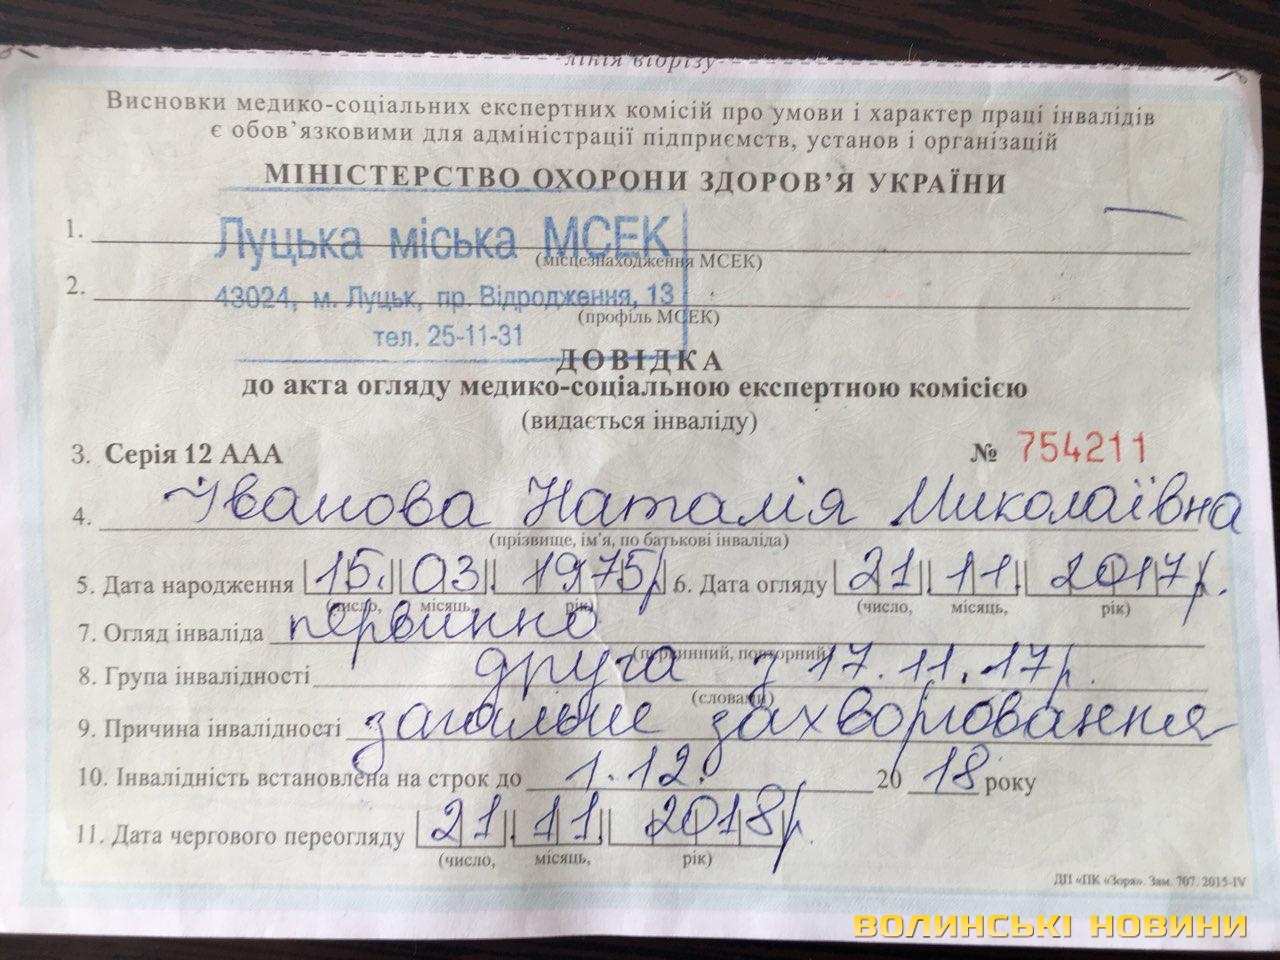 лінія відрізу
Висновки медико-соціальних експертних комісій про умови і характер праці інвалідів
є обов’язковими для адміністрації підприємств, установ і організацій
МІНІСТЕРСТВО ОХОРОНИ ЗДОРОВ’Я УКРАЇНИ
1. Луцька міська МСЕК
(місцезнаходження МСЕК)
2. 43024, м. Луцьк, пр. Відродження, 13
(профіль МСЕК)
тел. 25-11-31
ДОВІДКА
до акта огляду медико-соціальною експертною комісією
(видається інваліду)
3. Серія 12 ААА № 754211
4. Іванова Наталія Миколаївна
(прізвище, ім’я, по батькові інваліда)
5. Дата народження 15.03.1975р. 6. Дата огляду 21.11.2017р.
(число, місяць, рік) (число, місяць, рік)
7. Огляд інваліда первинно
(первинний, повторний)
8. Група інвалідності друга з 17.11.17р.
(словами)
9. Причина інвалідності загальне захворювання
10. Інвалідність встановлена на строк до 1.12. 20 18 року
11. Дата чергового переогляду 21.11.2018р.
(число, місяць, рік)
ДП «ПК «Зоря». Зам. 707. 2015-IV
ВОЛИНСЬКІ НОВИНИ